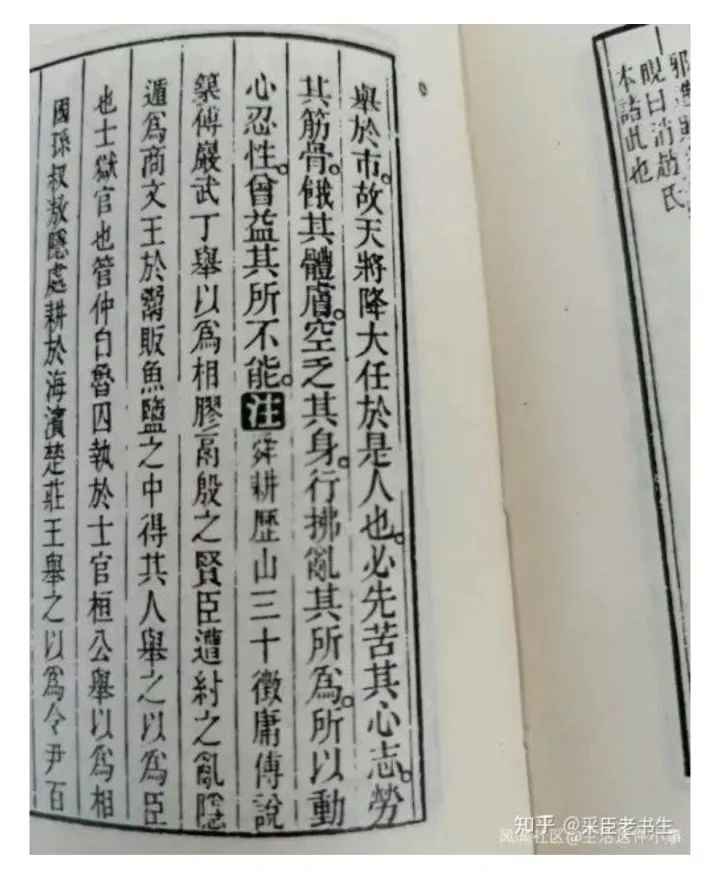 睍曰消趙氏
本詁此也
舉於市。故天將降大任於是人也。必先苦其心志。勞
其筋骨。餓其體膚。空乏其身。行拂亂其所爲。所以動
心忍性。曾益其所不能。注舜耕歷山三十徵庸傅說
築傅巖武丁舉以爲相膠鬲殷之賢臣遭紂之亂隱
遁爲商文王於鬻販魚鹽之中得其人舉之以爲臣
也士獄官也管仲自魯囚執於士官桓公舉以爲相
國孫叔敖隱處耕於海濱楚莊王舉之以爲令尹百
知乎 @采臣老书生
凤凰社区@生活这件小事